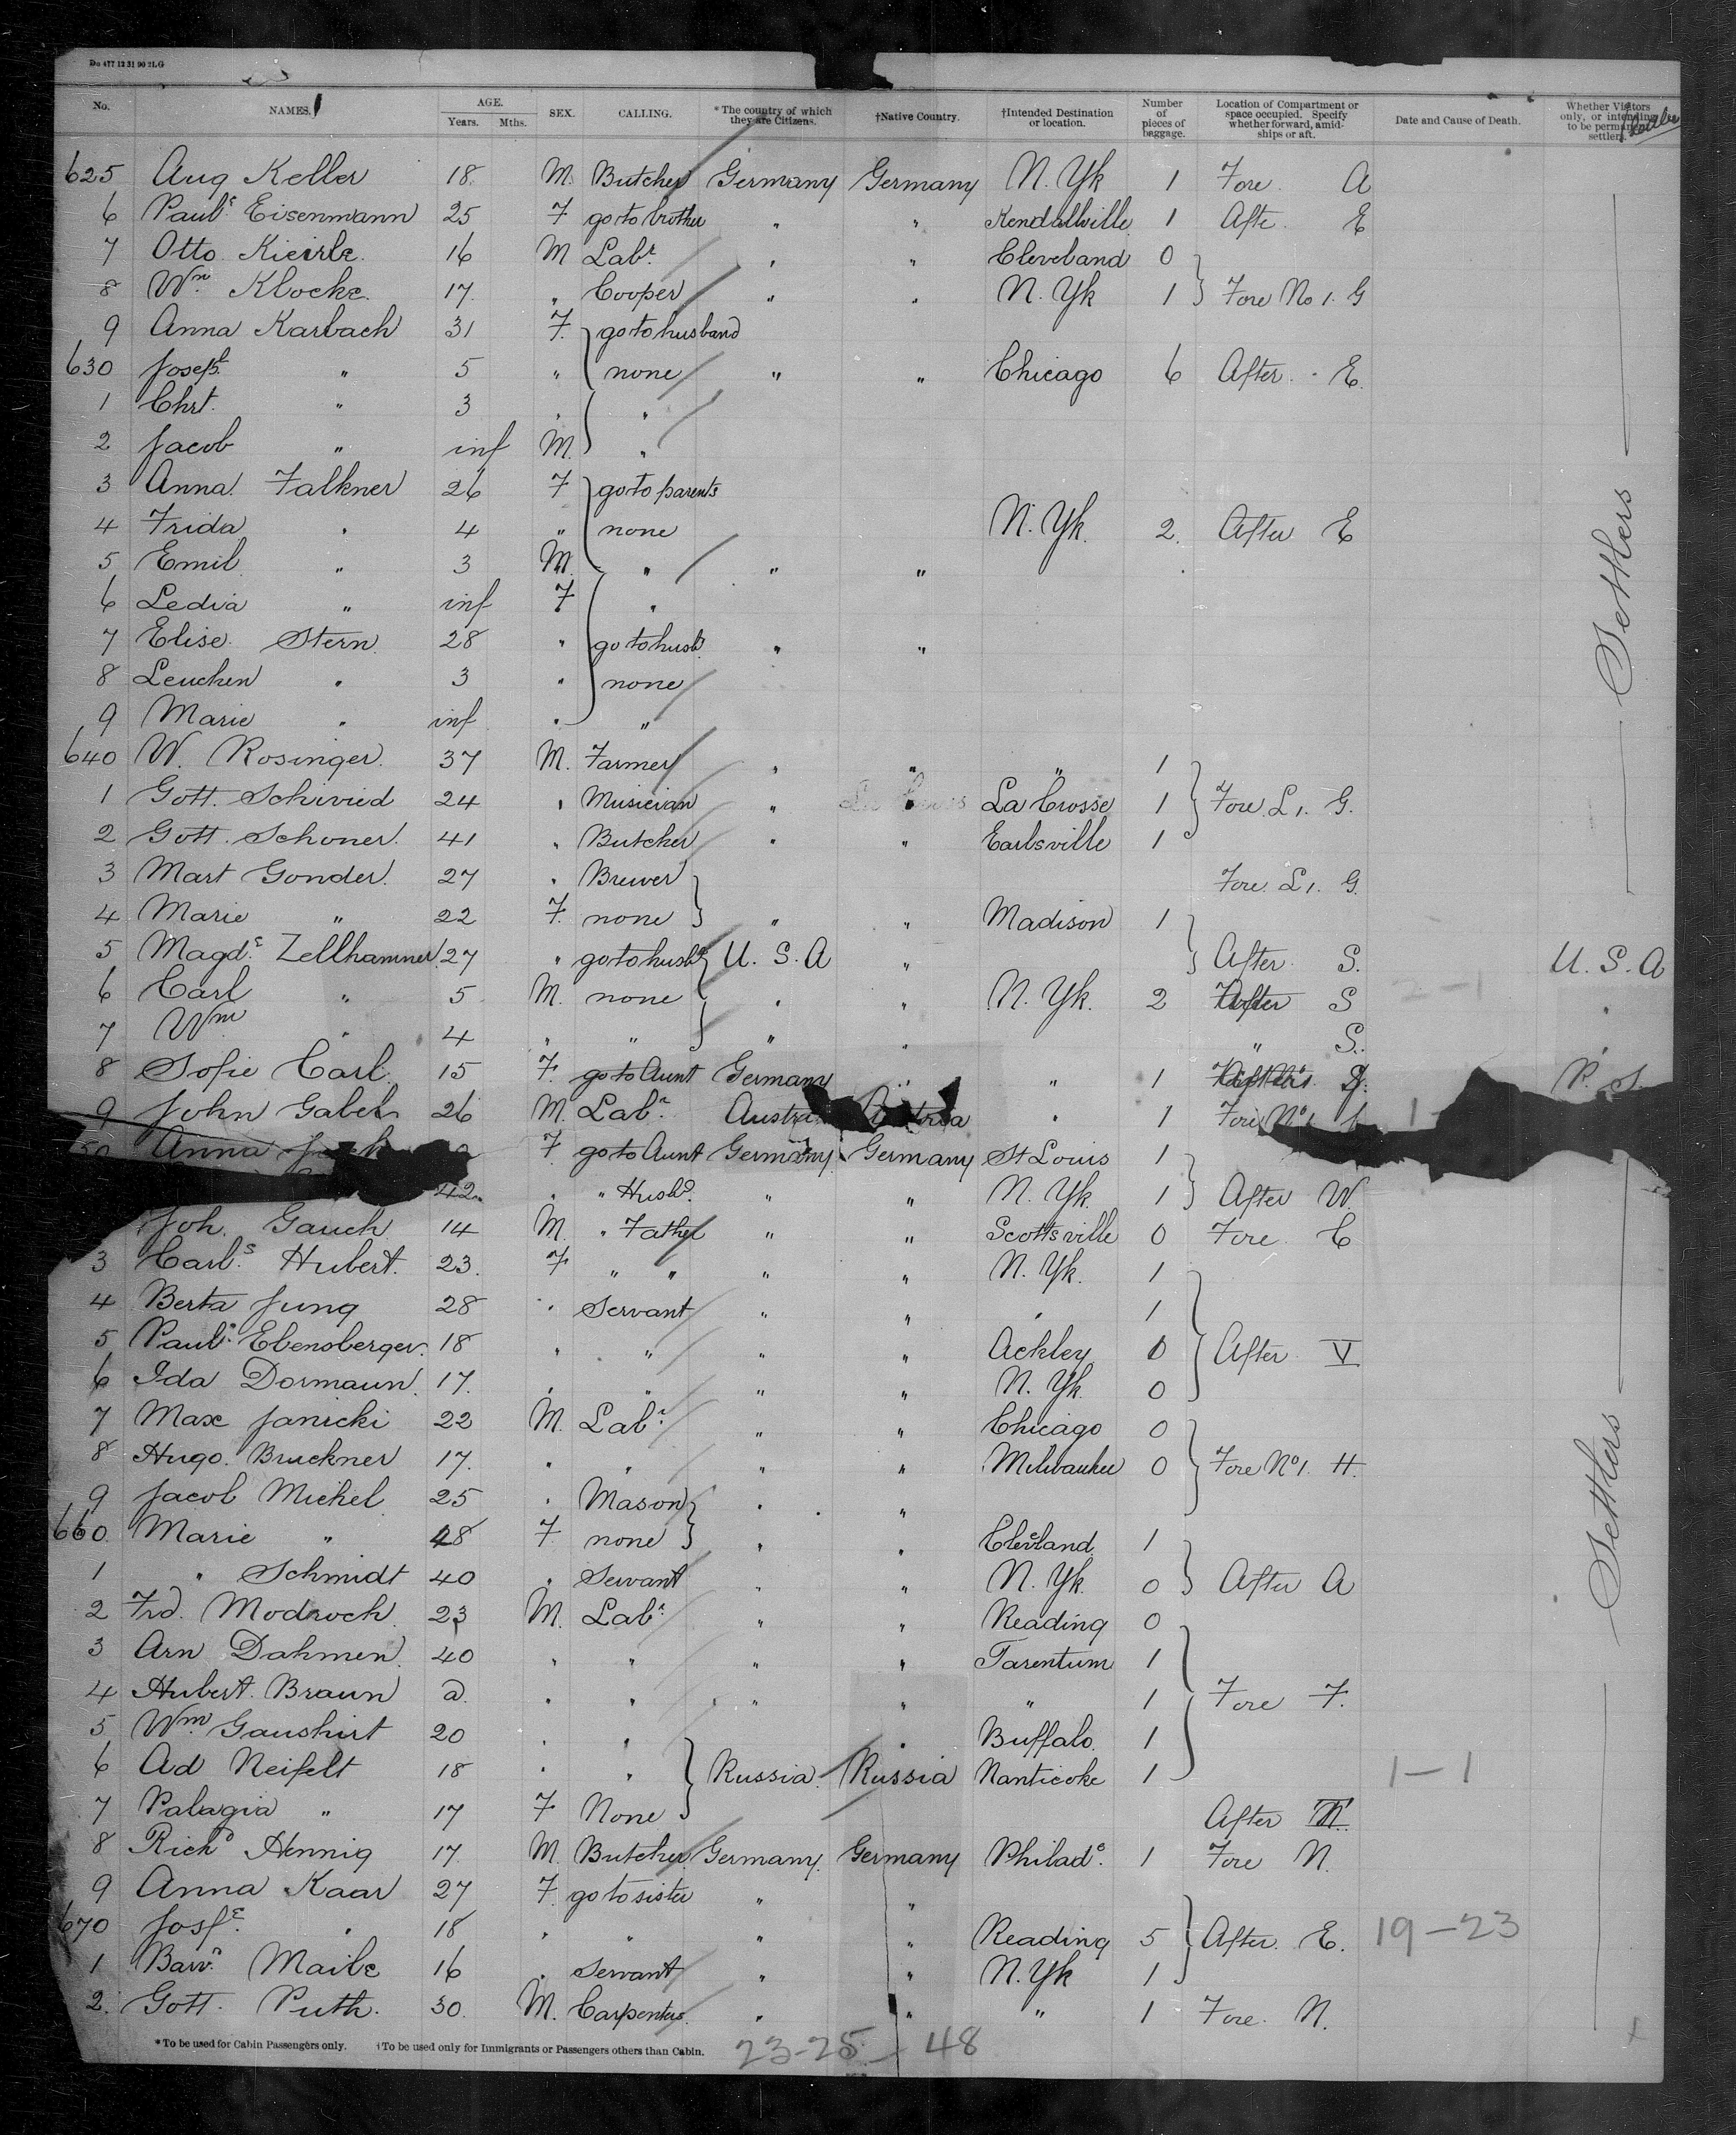 Do 477 12 31 90 2LG
No. NAMES. AGE. Years. Mths. SEX. CALLING. *The country of which they are Citizens. †Native Country. †Intended Destination or location. Number of pieces of baggage. Location of Compartment or space occupied. Specify whether forward, amidships or aft. Date and Cause of Death. Whether Visitors only, or intending to be permanent settlers.
625 Aug Keller 18 M. Butcher Germany Germany N. Yk 1 Fore A
6 Paul.e Eisenmann 25 F go to brother " " Kendallville 1 Afte. E
7 Otto 16 M Labr. " " Cleveland 0
8 Wm Klocke 17 " Cooper " " N. Yk 1 Fore No 1. G
9 Anna Karbach 31 F. go to husband
630 Joseph " 5 " none " " Chicago 6 After E.
1 Chrt. " 3 " "
2 Jacob " inf M. "
3 Anna Falkner 26 F go to parents
4 Frida " 4 " none N. Yk. 2. After E
5 Emil " 3 M. " " "
6 Ledia " inf F "
7 Elise Stern 28 " go to husbd. " "
8 Leuchen " 3 " none
9 Marie " inf " "
640 W. Rosinger 37 M. Farmer " " " 1
1 Gott. Schivied 24 " Musician " " La Crosse 1 Fore L 1. G.
2 Gott. Schoner 41 " Butcher " " Earlsville 1
3 Mart Gonder 27 " Brewer Fore L 1. G.
4 Marie " 22 F. none " " Madison 1
5 Magd.e Zellhammer 27 " go to husbd U. S. A " After S. U. S. A
6 Carl " 5 M. none " " N. Yk. 2 After S "
7 Wm " 4 " " " " " S.
8 Sofie Carl 15 F. go to Aunt Germany " " 1
9 John Gabel 26 M. Labr. Austria " 1 Fore No 1
50 Anna F go to Aunt Germany Germany St Louis 1
42 " " Husbd. " " N. Yk. 1 After W.
Joh. Gauch 14 M. " Father " " Scottsville 0 Fore C
3 Carl.s Hubert. 23. F " " " " N. Yk. 1
4 Berta Jung 28 " Servant " " " 1
5 Paul.e Ebensberger. 18 " " " " Ackley 0 After V
6 Ida Dormaun 17. " " " " N. Yk. 0
7 Max Janicki 22 M. Labr. " " Chicago 0
8 Hugo. Bruckner 17. " " " " Milwaukee 0 Fore No 1. H.
9 Jacob Michel 25 " Mason " "
660 Marie " 48 F none " " Cleveland 1
1 " Schmidt 40 " Servant " " N. Yk. 0 After A
2 Frd. Modroch 23 M. Labr. " " Reading 0
3 Arn Dahmen 40 " " " " Tarentum 1
4 Hubert. Braun a. " " " " " 1 Fore F.
5 Wm. Gaushirt 20 " " " Buffalo 1
6 Ad Neifelt 18 " " Russia Russia Nanticoke 1 1-1
7 Palagia " 17 F None After
8 Richd Hennig 17 M. Butcher Germany. Germany Philad.e 1 Fore N.
9 Anna Kaar 27 F go to sister " "
670 Josf.e " 18 " " " " Reading 5 After. E. 19-23
1 Barr. Maile 16 " Servant " " N. Yk 1
2. Gott. Puth. 30. M. Carpenter. " " " 1 Fore. N.
Settlers
Settlers
*To be used for Cabin Passengers only. †To be used only for Immigrants or Passengers others than Cabin.
23-25-48